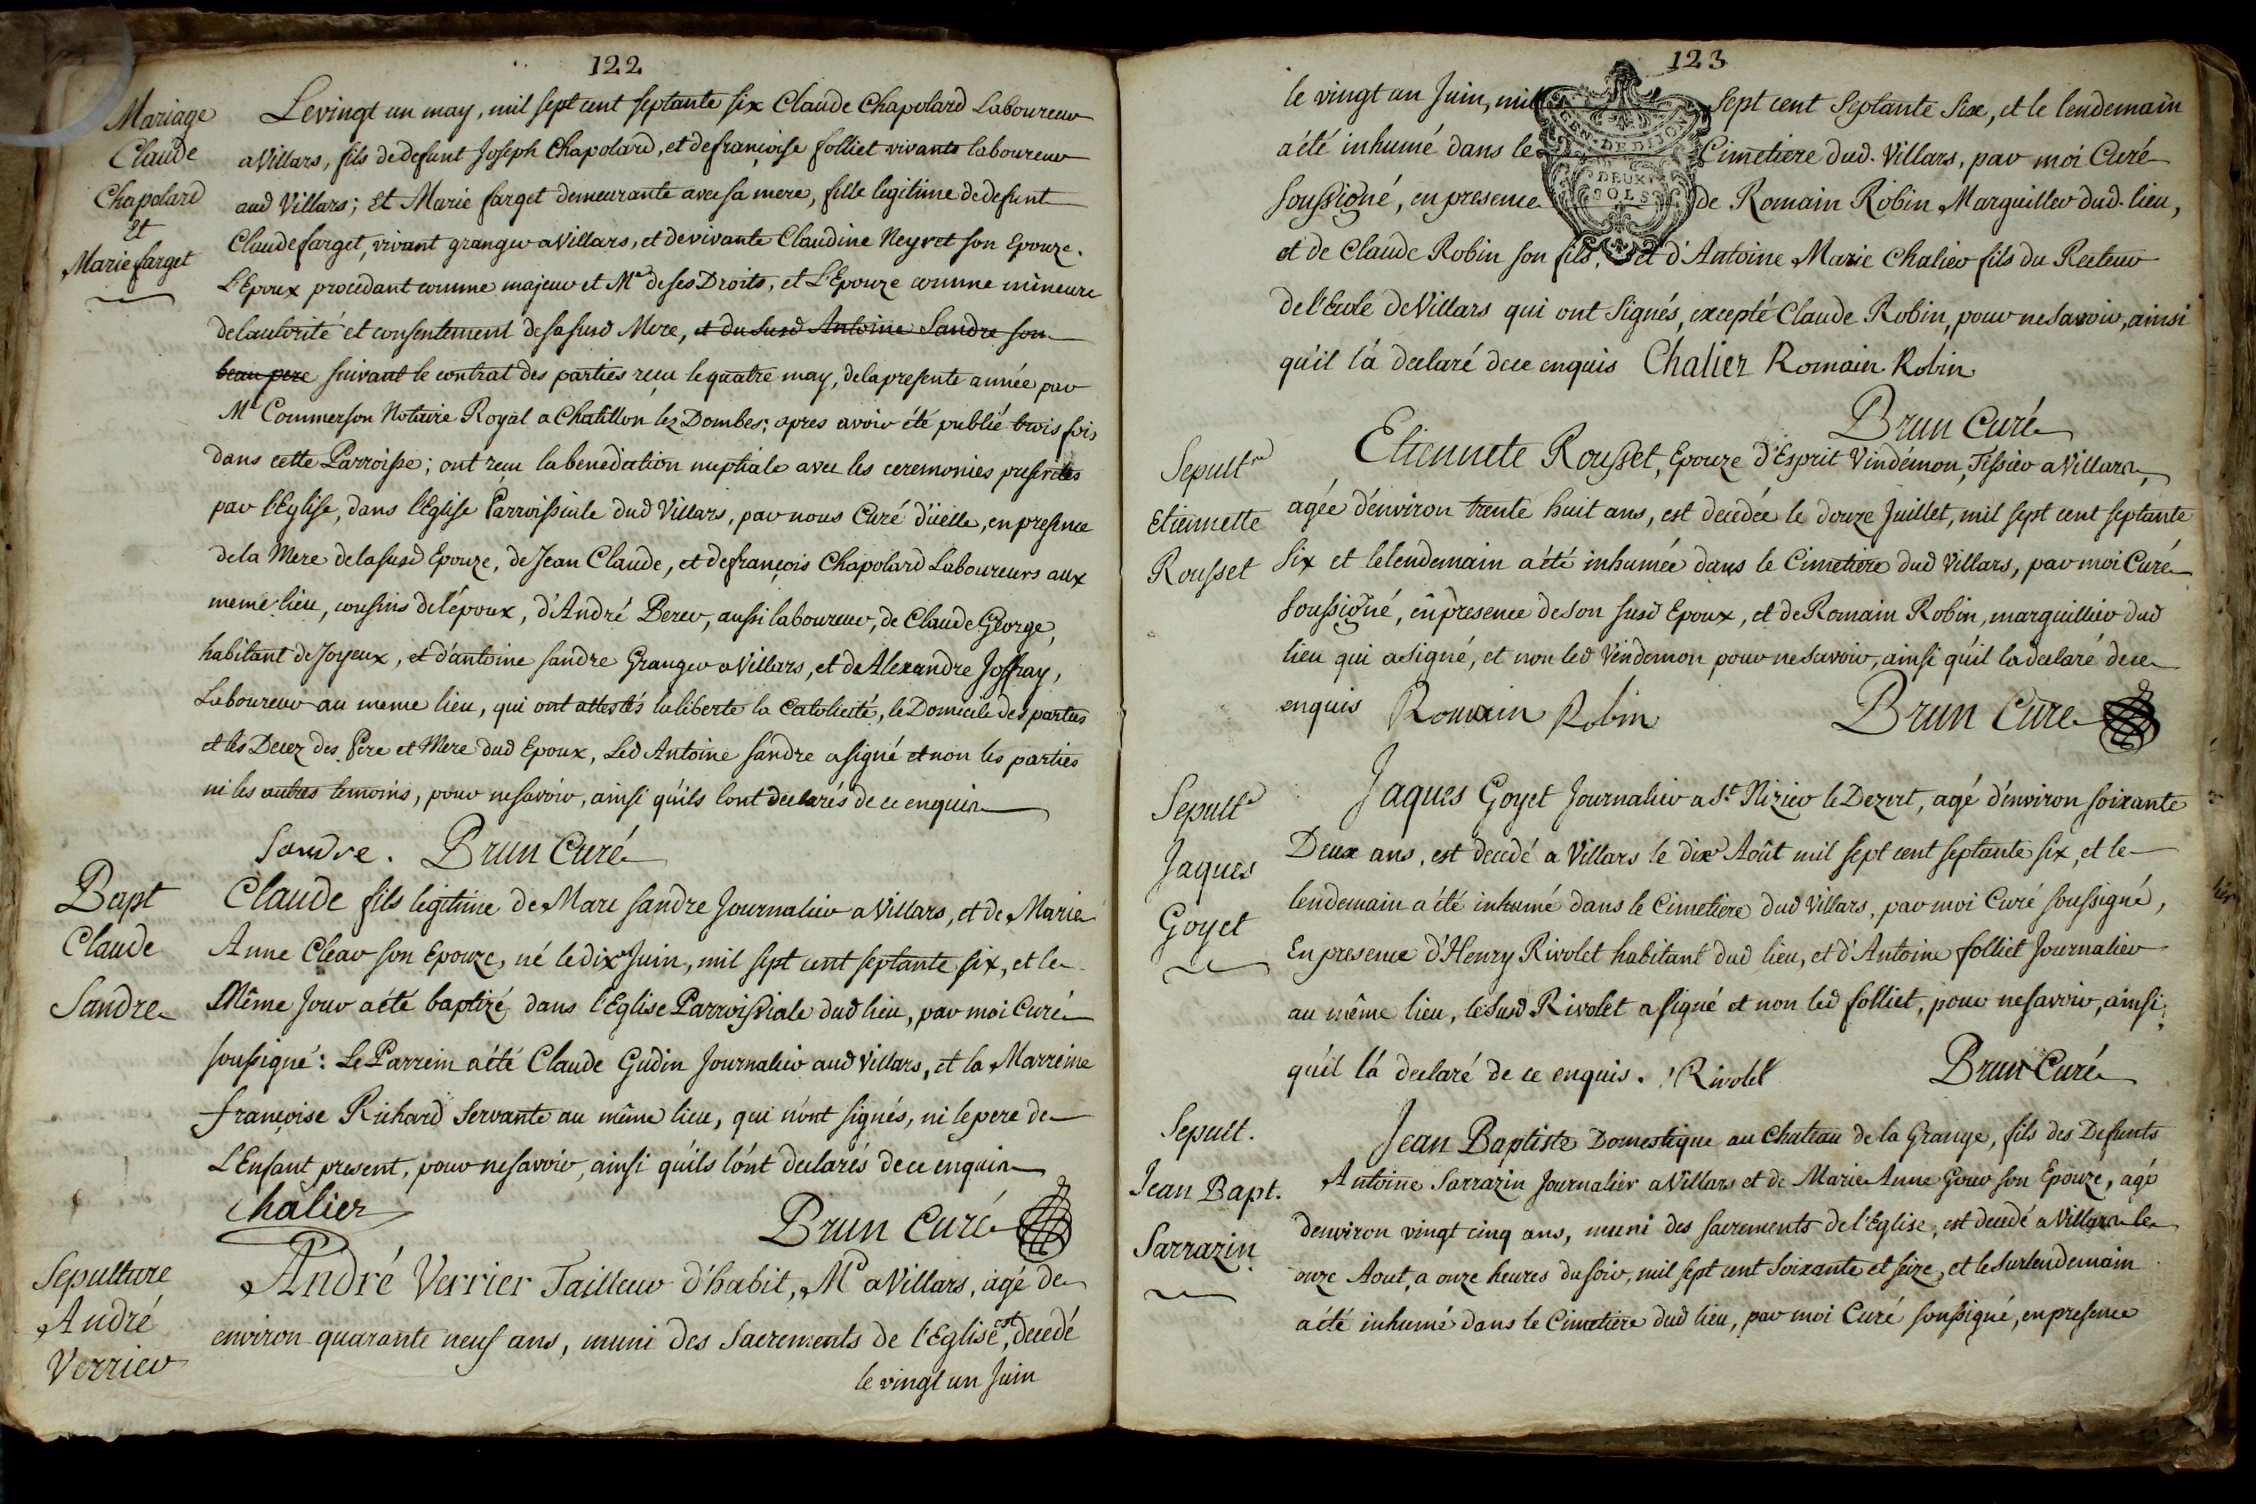 122
Mariage
Claude
Chapolard
Et
Marie farget
Le vingt un may, mil sept cent septante six Claude Chapolard Laboureur
a Villars, fils de defunt Joseph Chapolard, et de françoise folliet vivants laboureur
aud Villars; Et Marie farget demeurante avec sa mere, fille legitime de defunt
Claude farget, vivant granger a Villars, et de vivante Claudine Neyret son Epouze.
L'Epoux procedant comme majeur et Me de ses Droits, et L'Epouze comme mineure
de l'autorité et consentement de sa susd Mere, et du susd Antoine Sandre son
beau pere suivant le contrat des parties reçu le quatre may, de la presente année par
Me Commerson Notaire Royal a Chatillon lez Dombes; apres avoir été publié trois fois
dans cette Parroisse; ont reçu la benediction nuptiale avec les ceremonies prescrites
par l'Eglise, dans l'Eglise Parroissiale dud Villars, par nous Curé d'icelle, en presence
de la Mere de la susd Epouze, de Jean Claude, et de françois Chapolard Laboureurs aux
meme lieu, cousins de l'époux, d'André Berer, aussi laboureur, de Claude George,
habitant de Joyeux, et d'antoine sandre Granger a Villars, et de Alexandre Joffray,
Laboureur au meme lieu, qui ont attestés la liberte la Catolicité, le Domicile des parties
et les Decez des Pere et Mere dud Epoux, Led Antoine sandre a signé et non les parties
ni les autres temoins, pour ne savoir, ainsi qu'ils l'ont declarés de ce enquis
Sandre. Brun Curé
Bapt
Claude
Sandre
Claude fils legitime de Marc sandre Journalier a Villars, et de Marie
Anne Clear son Epouze, né le dix Juin, mil sept cent septante six, et le
Même Jour a été baptizé dans l'Eglise Parroissiale dud lieu, par moi Curé
soussigné: Le Parrein a été Claude Gudin Journalier aud Villars, et la Marreine
françoise Richard Servante au même lieu, qui n'ont signés, ni le pere de
L'Enfant present, pour ne savoir, ainsi qu'ils l'ont declarés de ce enquis
Chalier
Brun Curé
Sepulture
André
Verrier
André Verrier Tailleur d'habit, Md a Villars, agé de
environ quarante neuf ans, muni des Sacrements de l'Eglise, est decedé
le vingt un Juin
123
le vingt un Juin, mil sept cent Septante Six, et le lendemain
a été inhumé dans le Cimetiere dud. Villars, par moi Curé
soussigné, en presence de Romain Robin Marguiller dud. lieu,
et de Claude Robin son fils, et d'Antoine Marie Chalier fils du Recteur
de l'Ecole de Villars qui ont Signés, excepté Claude Robin, pour ne savoir, ainsi
qu'il l'a declaré de ce enquis Chalier Romain Robin
Brun Curé
GEN. DE DIJON
DEUX
SOLS
Sepultre
Etiennette
Rousset
Etiennete Rousset, Epouze d'Esprit Vindémon, Tissier a Villars,
agée d'environ trente huit ans, est decedée le douze Juillet, mil sept cent septante
six et le lendemain a été inhumée dans le Cimetiere dud Villars, par moi Curé
soussigné, en presence de son susd Epoux, et de Romain Robin, marguillier dud
lieu qui a signé, et non led Vindemon pour ne savoir, ainsi qu'il la declaré de ce
enquis Romain Robin
Brun Cure
Sepultre
Jaques
Goyet
Jaques Goyet Journalier a St Nizier le Dezert, agé d'environ soixante
Deux ans, est decedé a Villars le dix Août mil sept cent septante six, et le
lendemain a été inhumé dans le Cimetiere dud Villars, par moi Curé soussigné,
En presence d'Henry Rivolet habitant dud lieu, et d'Antoine folliet Journalier
au même lieu, le susd Rivolet a signé et non led folliet, pour ne savoir, ainsi
qu'il l'a declaré de ce enquis. Rivolet
Brun Curé
Sepult.
Jean Bapt.
Sarrazin
Jean Baptiste Domestique au Chateau de la Grange, fils des Defunts
Antoine Sarrazin Journalier a Villars et de Marie Anne Gour son Epouze, agé
d'environ vingt cinq ans, muni des sacrements de l'Eglise, est decedé a Villars le
onze Aout, a onze heures du soir, mil sept cent soixante et seize, et le surlendemain
a été inhumé dans le Cimetiere dud lieu, par moi Curé soussigné, en presence